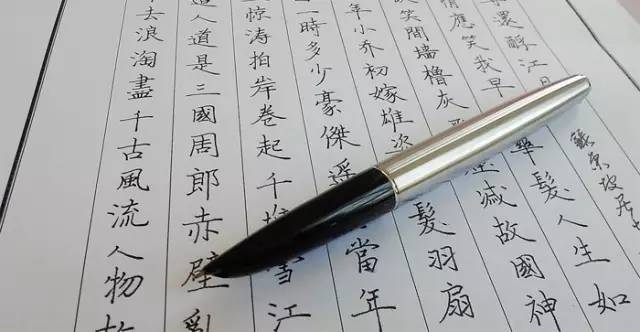 去浪淘盡千古風流人物故
人道是三國周郎赤壁亂
驚涛拍岸卷起千堆雪江
一時多少豪傑遥當年
年小乔初嫁雄姿髮羽扇
笑間墙櫓灰滅故國神
情應笑我早華髮人生如
還酹江月
蘇東坡